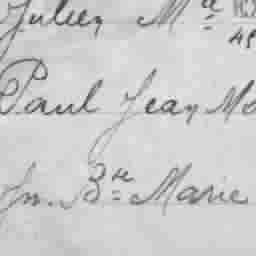 Julien M.ᵃ
Paul Jean Ma
Jn. Bᵗᵉ Marie